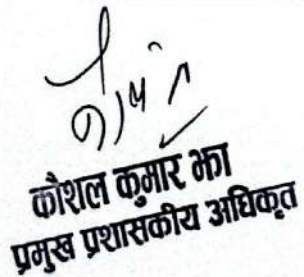 कौशल कुमार झा
प्रमुख प्रशासकीय अधिकृत